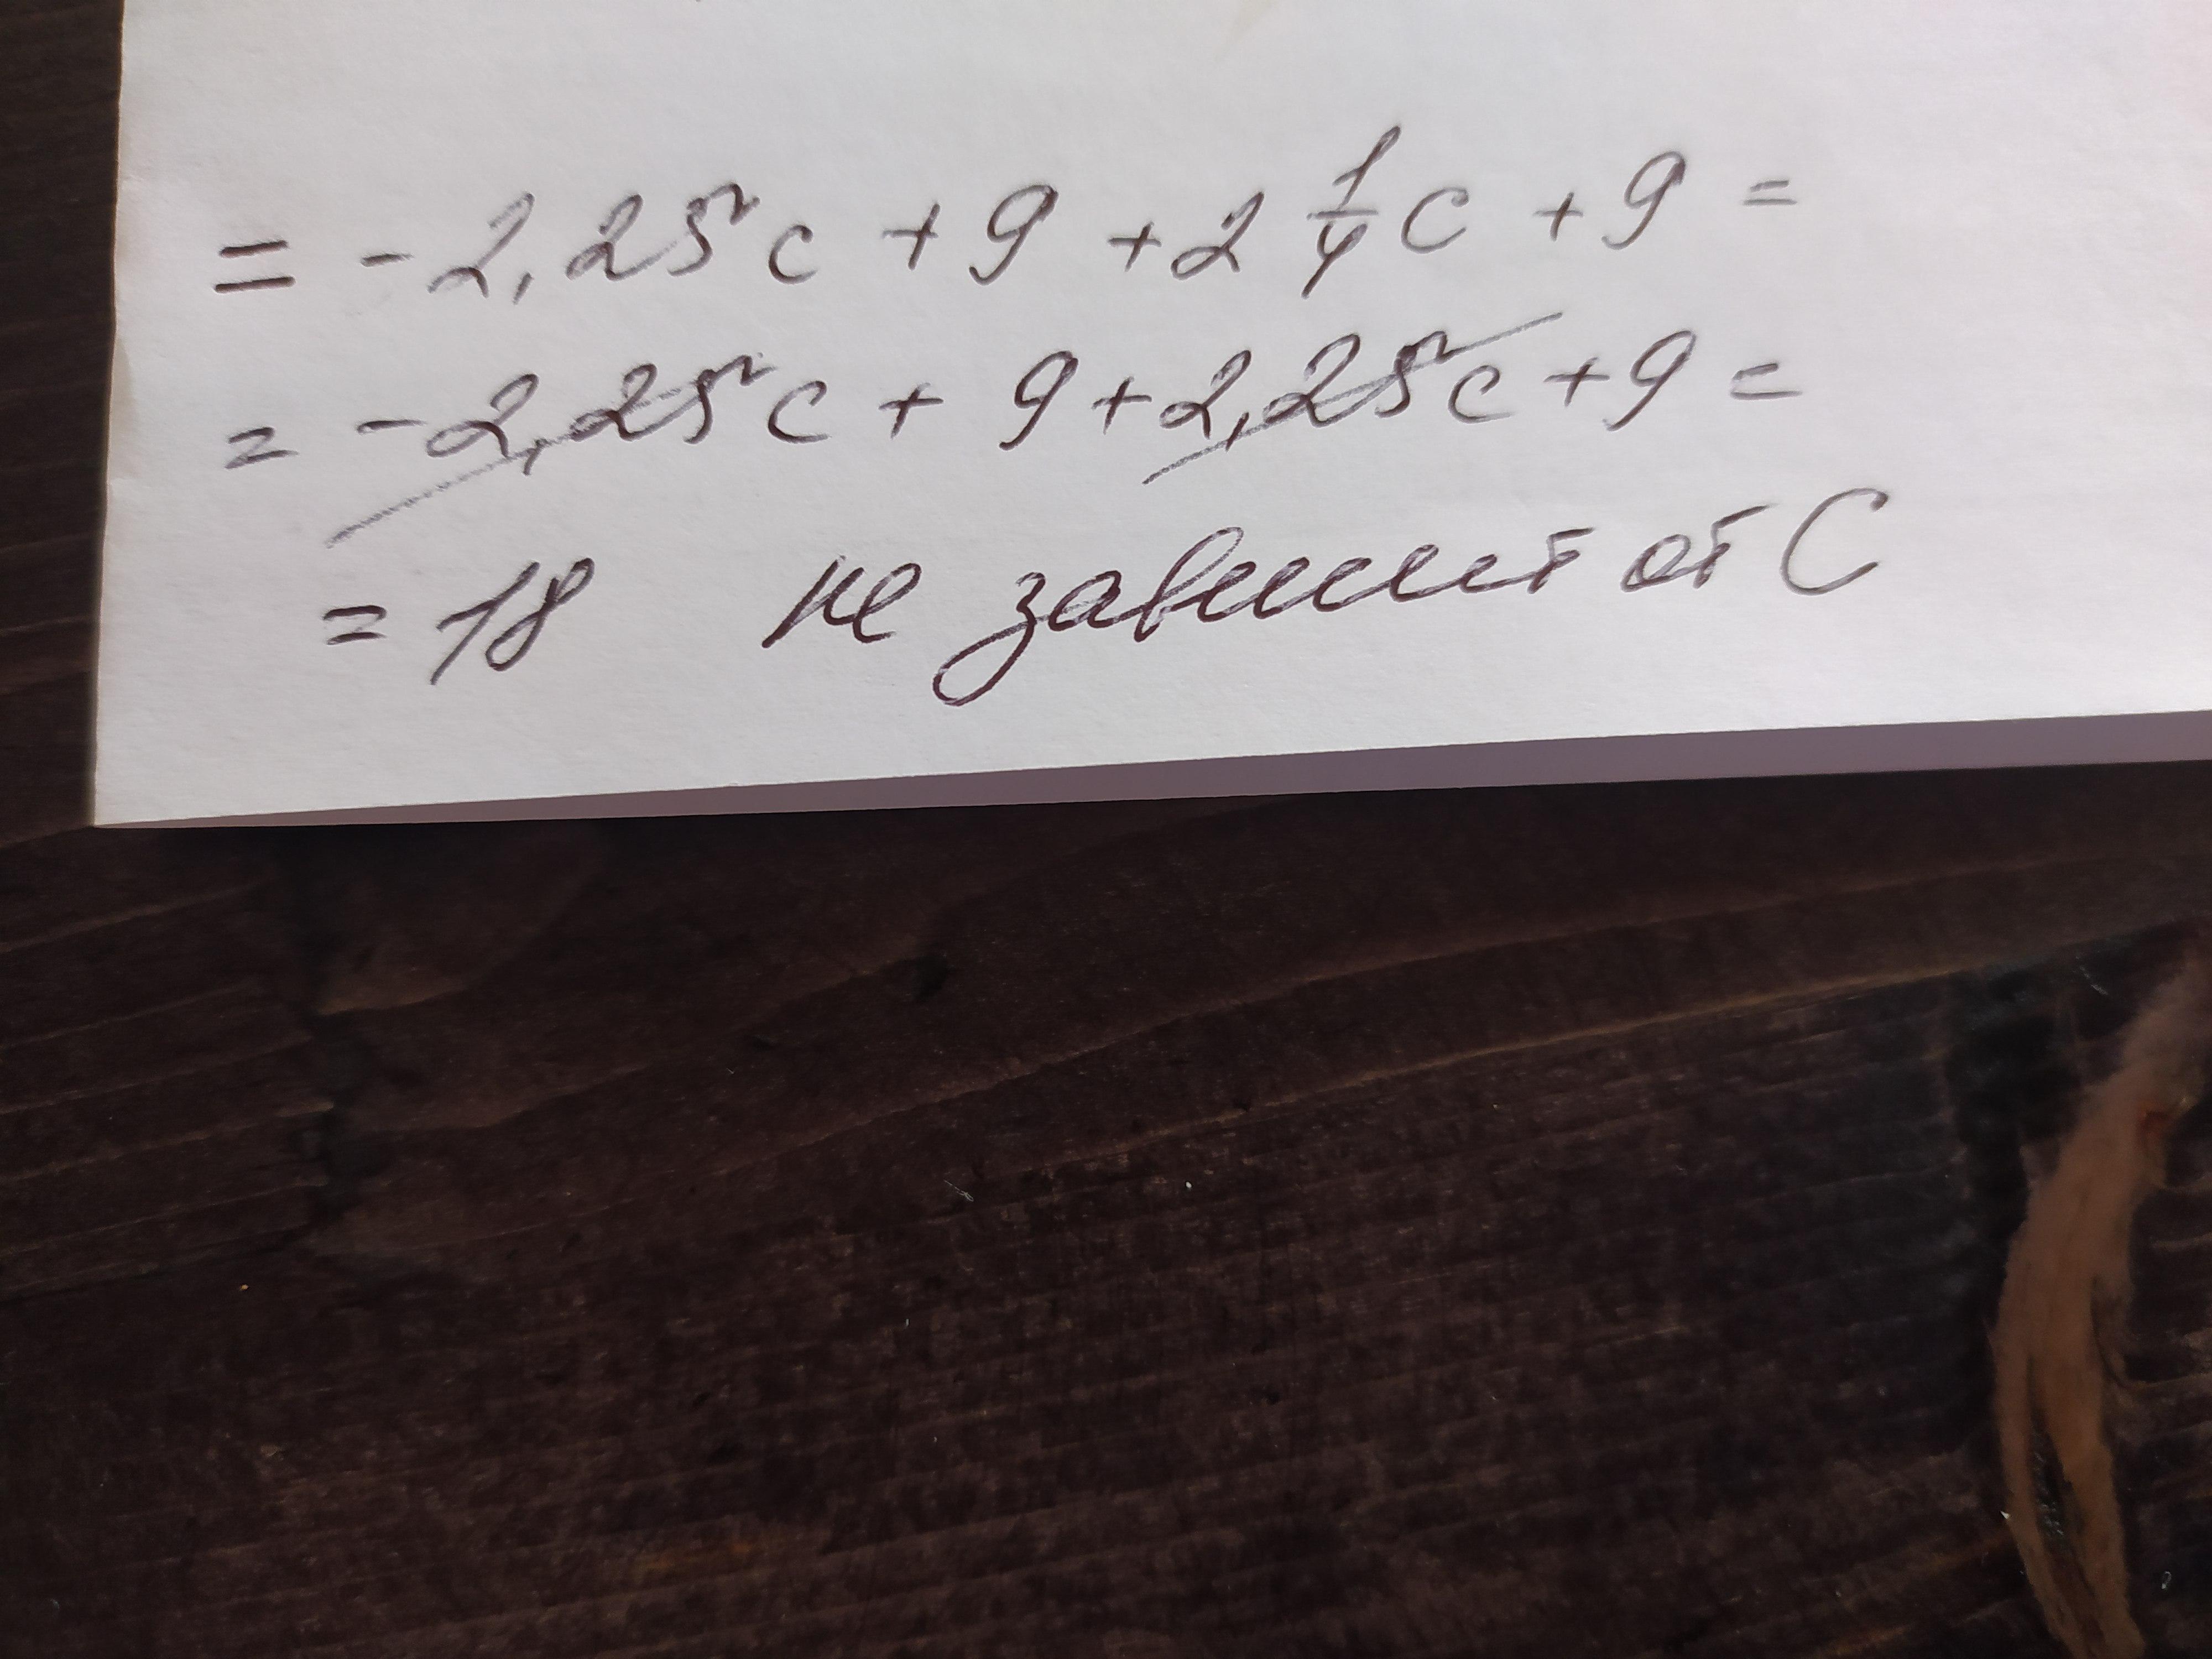 = -2,25 c + 9 + 2 1/4 c + 9 =
= -2,25 c + 9 + 2,25 c + 9 =
= 18 не зависит от С